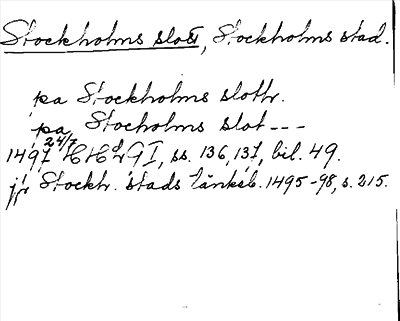 Stockholms slott, Stockholms stad.
pa Stockholms slothr.
pa Stocholms slot ---
1497 24/7 HH d GI, ss. 136, 137, bil. 49.
jfr Stockh. stads tänkeb. 1495-98, s. 215.